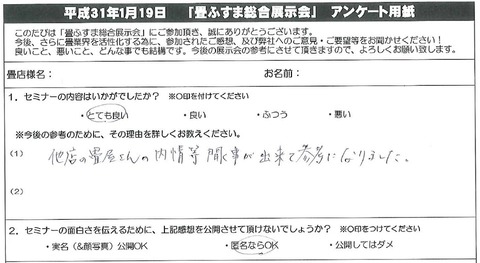 平成31年1月19日 「畳ふすま総合展示会」 アンケート用紙
このたびは「畳ふすま総合展示会」にご参加頂き、誠にありがとうございます。
今後、さらに畳業界を活性化する為に、参加されたご感想、及び弊社へのご意見・ご要望等をお聞かせください!
良いこと、悪いこと、どんな事でも結構です。今後の展示会の参考にさせて頂きますので、よろしくお願い致します。
畳店様名: お名前:
1.セミナーの内容はいかがでしたか? ※○印を付けてください
・とても良い ・良い ・ふつう ・悪い
※今後の参考のために、その理由を詳しくお教えください。
(1) 他店の畳屋さんの内情等聞く事が出来て参考になりました。
(2)
2.セミナーの面白さを伝えるために、上記感想を公開させて頂けないでしょうか? ※○印をつけてください
・実名(&顔写真)公開OK ・匿名ならOK ・公開してはダメ